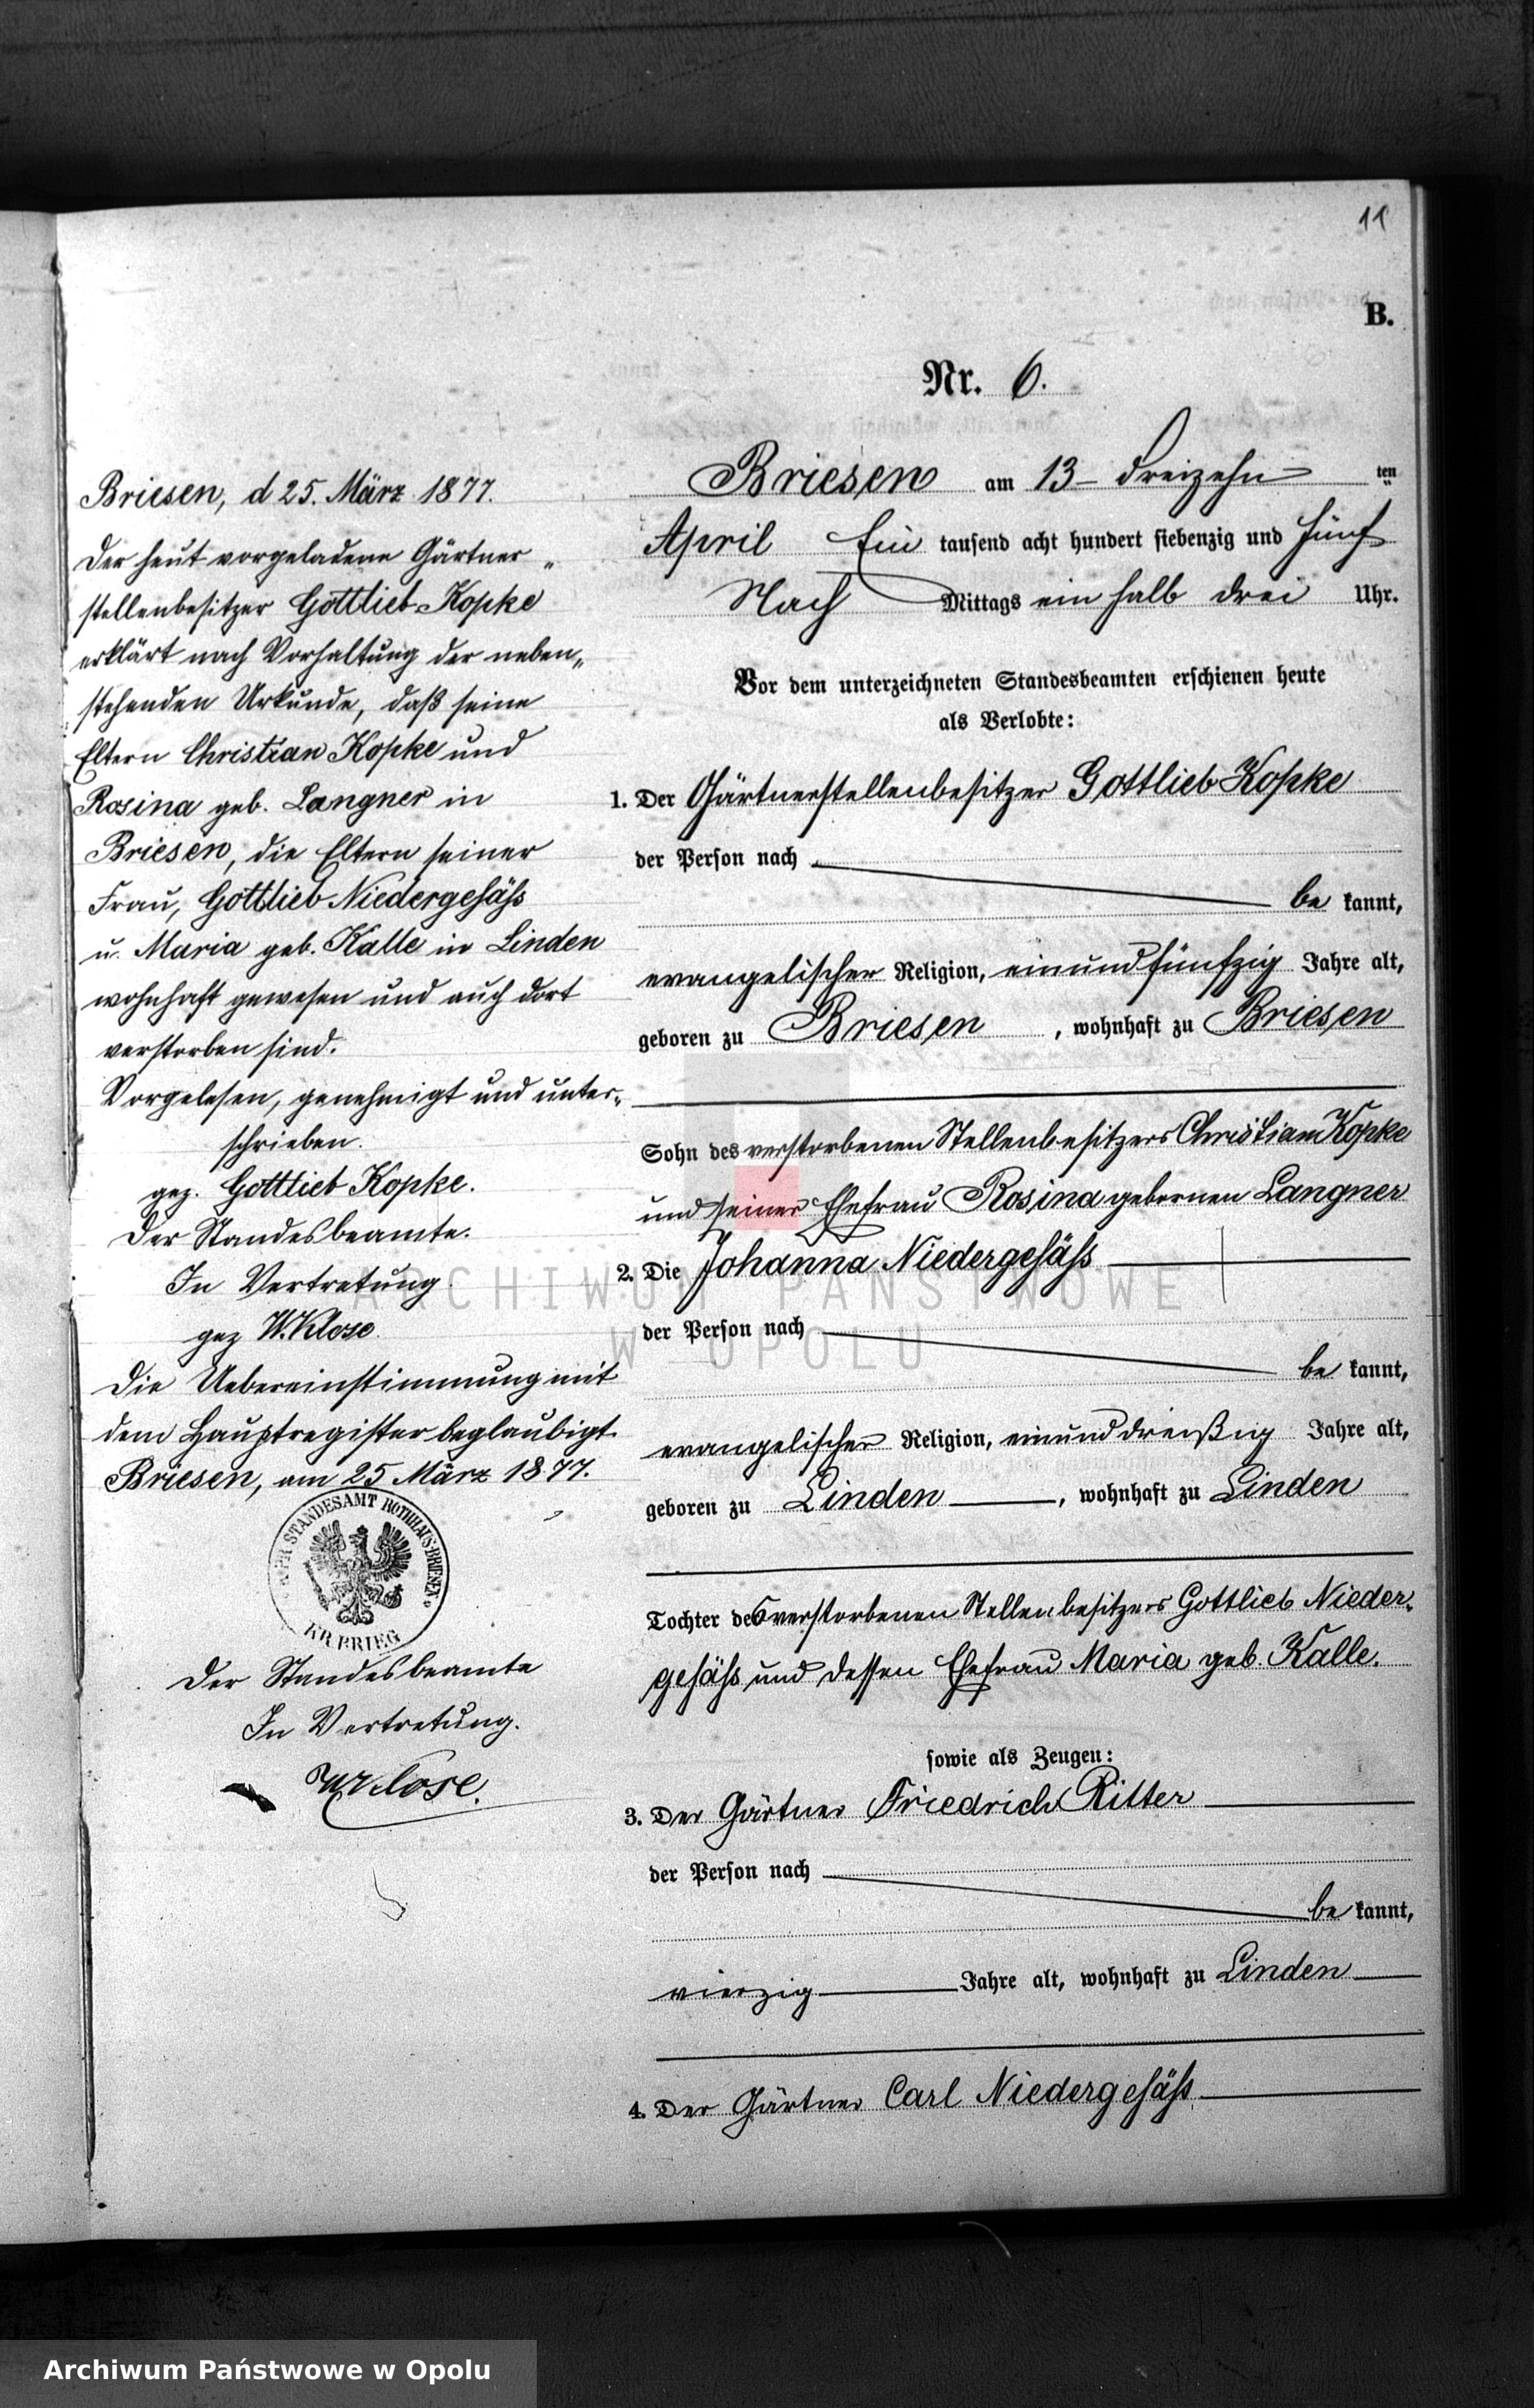 11
B.
Nr. 6.
Briesen, d 25. März 1877.
Der heut vorgeladene Gärtner„
stellenbesitzer Gottlieb Kopke
erklärt nach Vorhaltung der neben„
stehenden Urkunde, daß seine
Eltern Christian Kopke und
Rosina geb. Langner in
Briesen, die Eltern seiner
Frau, Gottlieb Niedergesäß
u. Maria geb. Kalle in Linden
wohnhaft gewesen und auch dort
verstorben sind.
Vorgelesen, genehmigt und unter„
schrieben.
gez. Gottlieb Kopke.
Der Standesbeamte.
In Vertretung.
gez W. Klose.
Die Uebereinstimmung mit
dem Hauptregister beglaubigt.
Briesen, am 25 März 1877.
K. PR STANDESAMT ROTHHAUS-BRIESEN
KR. BRIEG
Der Standesbeamte
In Vertretung.
W. Klose.
Briesen am 13 – dreizehn ten
April Ein tausend acht hundert siebenzig und fünf
Nach Mittags ein halb drei Uhr.
Vor dem unterzeichneten Standesbeamten erschienen heute
als Verlobte:
1. Der Gärtnerstellenbesitzer Gottlieb Kopke
der Person nach
be kannt,
evangelischer Religion, einundfünfzig Jahre alt,
geboren zu Briesen, wohnhaft zu Briesen
Sohn des verstorbenen Stellenbesitzers Christian Kopke
und seiner Ehefrau Rosina gebornen Langner
2. Die Johanna Niedergesäß
der Person nach
be kannt,
evangelischer Religion, einunddreißig Jahre alt,
geboren zu Linden, wohnhaft zu Linden
Tochter des verstorbenen Stellenbesitzers Gottlieb Nieder„
gesäß und dessen Ehefrau Maria geb. Kalle.
sowie als Zeugen:
3. Der Gärtner Friedrich Ritter
der Person nach
be kannt,
vierzig Jahre alt, wohnhaft zu Linden
4. Der Gärtner Carl Niedergesäß
ARCHIWUM PAŃSTWOWE
W OPOLU
Archiwum Państwowe w Opolu